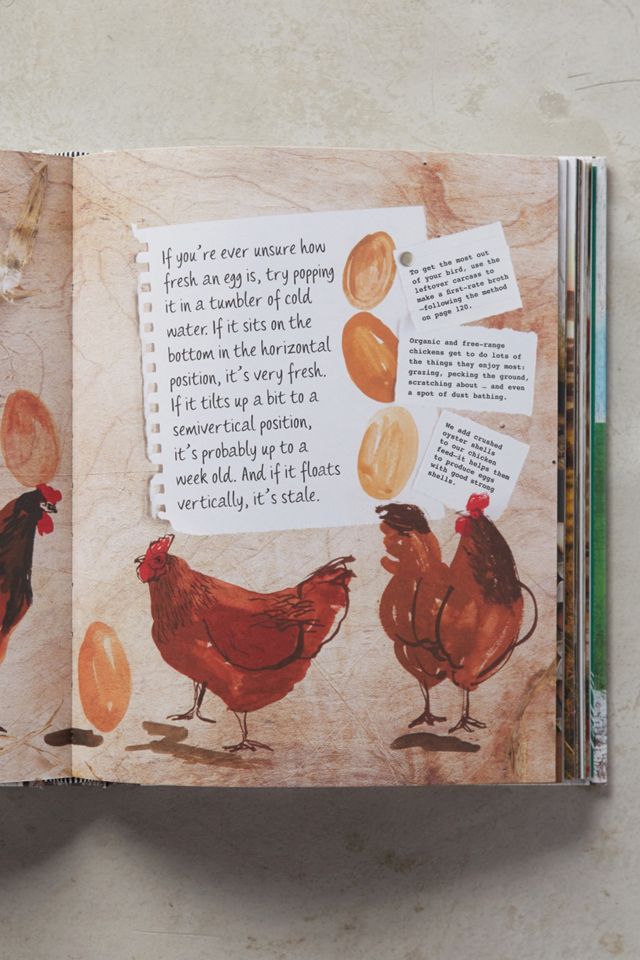 If you're ever unsure how
fresh an egg is, try popping
it in a tumbler of cold
water. If it sits on the
bottom in the horizontal
position, it's very fresh.
If it tilts up a bit to a
semivertical position,
it's probably up to a
week old. And if it floats
vertically, it's stale.
To get the most out
of your bird, use the
leftover carcass to
make a first-rate broth
—following the method
on page 120.
Organic and free-range
chickens get to do lots of
the things they enjoy most:
grazing, pecking the ground,
scratching about … and even
a spot of dust bathing.
We add crushed
oyster shells
to our chicken
feed—it helps them
to produce eggs
with good strong
shells.